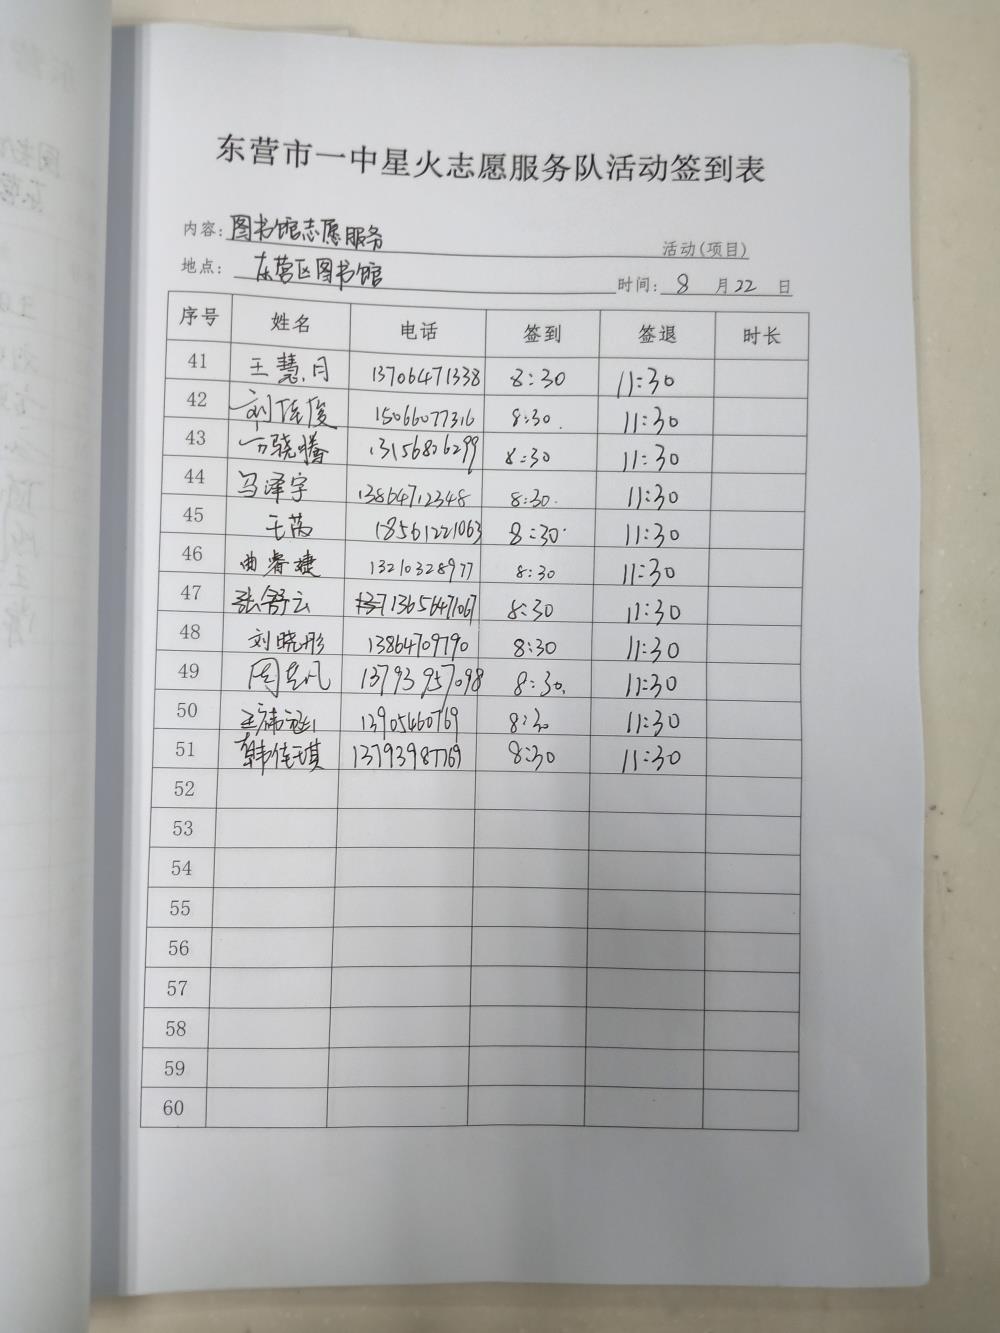 东营市一中星火志愿服务队活动签到表
内容: 图书馆志愿服务 活动(项目)
地点: 东营区图书馆 时间: 8 月 22 日
序号 姓名 电话 签到 签退 时长
41 王慧月 13706471338 8:30 11:30
42 刘佳俊 15066077316 8:30 11:30
43 万骁腾 13156826299 8:30 11:30
44 马泽宇 13864712348 8:30 11:30
45 王芮 18561221063 8:30 11:30
46 曲睿婕 13210328977 8:30 11:30
47 张舒云 13656471067 8:30 11:30
48 刘晓彤 13864709790 8:30 11:30
49 13793957098 8:30 11:30
50 13905460769 8:30 11:30
51 韩佳琪 13793987769 8:30 11:30
52
53
54
55
56
57
58
59
60